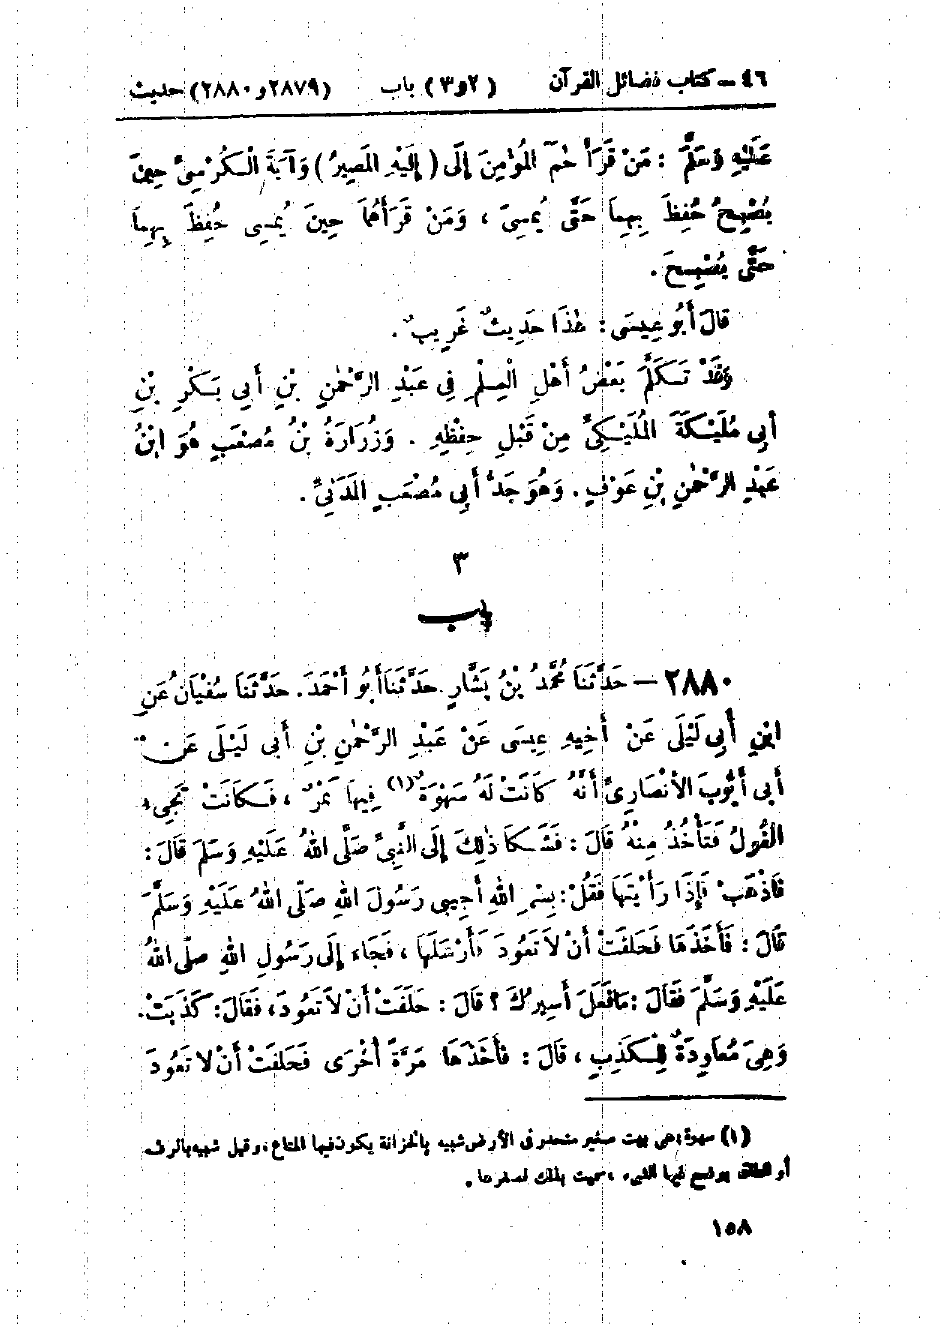 ٤٦ – كتاب فضائل القرآن (٢ و ٣) باب (٢٨٧٩ و ٢٨٨٠) حديث
عَلَيْهِ وَسَلَّمَ : مَنْ قَرَأَ حٰمَ المُؤْمِنَ إِلَى ( إِلَيْهِ المَصِيرُ ) وَآيَةَ الْكُرْسِيِّ حِينَ
يُصْبِحُ حُفِظَ بِهِمَا حَتَّى يُمسِيَ ، وَمَنْ قَرَأَهُمَا حِينَ يُمْسِى حُفِظَ بِهِمَا
حَتَّى يُصْبِحَ .
قَالَ أَبُو عِيسَى : هٰذَا حَدِيثٌ غَرِيبٌ .
وَقَدْ تَكَلَّمَ بَعْضُ أَهْلِ الْعِلْمِ فِى عَبْدِ الرَّحْمٰنِ بْنِ أَبِى بَكْرِ بْنِ
أَبِى مُلَيْكَةَ المُلَيْكِيِّ مِنْ قَبْلِ حِفْظِهِ . وَزُرَارَةُ بْنُ مُصْعَبٍ هُوَ ابْنُ
عَبْدِ الرَّحْمٰنِ بْنِ عَوْفٍ . وَهُوَ جَدُّ أَبِى مُصْعَبٍ المَدَنِيِّ .
٣
باب
٢٨٨٠ – حَدَّثَنَا مُحَمَّدُ بْنُ بَشَّارٍ حَدَّثَنَا أَبُو أَحْمَدَ . حَدَّثَنَا سُفْيَانُ عَنِ
ابْنِ أَبِى لَيْلَى عَنْ أَخِيهِ عِيسَى عَنْ عَبْدِ الرَّحْمٰنِ بْنِ أَبِى لَيْلَى عَنْ
أَبِى أَيُّوبَ الأَنْصَارِىِّ أَنَّهُ كَانَتْ لَهُ سَهْوَةٌ (١) فِيهَا تَمْرٌ ، فَكَانَتْ تَجِىءُ
الْغُولُ فَتَأْخُذُ مِنْهُ قَالَ : فَشَكَا ذٰلِكَ إِلَى النَّبِىِّ صَلَّى اللهُ عَلَيْهِ وَسَلَّمَ قَالَ :
فَاذْهَبْ فَإِذَا رَأَيْتَهَا فَقُلْ : بِسْمِ اللهِ أَجِيبِى رَسُولَ اللهِ صَلَّى اللهُ عَلَيْهِ وَسَلَّمَ
قَالَ : فَأَخَذَهَا فَحَلَفَتْ أَنْ لَا تَعُودَ فَأَرْسَلَهَا ، فَجَاءَ إِلَى رَسُولِ اللهِ صَلَّى اللهُ
عَلَيْهِ وَسَلَّمَ فَقَالَ : مَا فَعَلَ أَسِيرُكَ ؟ قَالَ : حَلَفَتْ أَنْ لَا تَعُودَ ، فَقَالَ : كَذَبَتْ .
وَهِىَ مُعَاوِدَةٌ لِلْكَذِبِ ، قَالَ : فَأَخَذَهَا مَرَّةً أُخْرَى فَحَلَفَتْ أَنْ لَا تَعُودَ
(١) سهوة : هى بيت صغير منحدر فى الأرض شبيه بالخزانة يكون فيها المتاع ، وقيل شبيه بالرف
أو الطاق يوضع فيها الشىء ، سميت بذلك لصغرها .
١٥٨